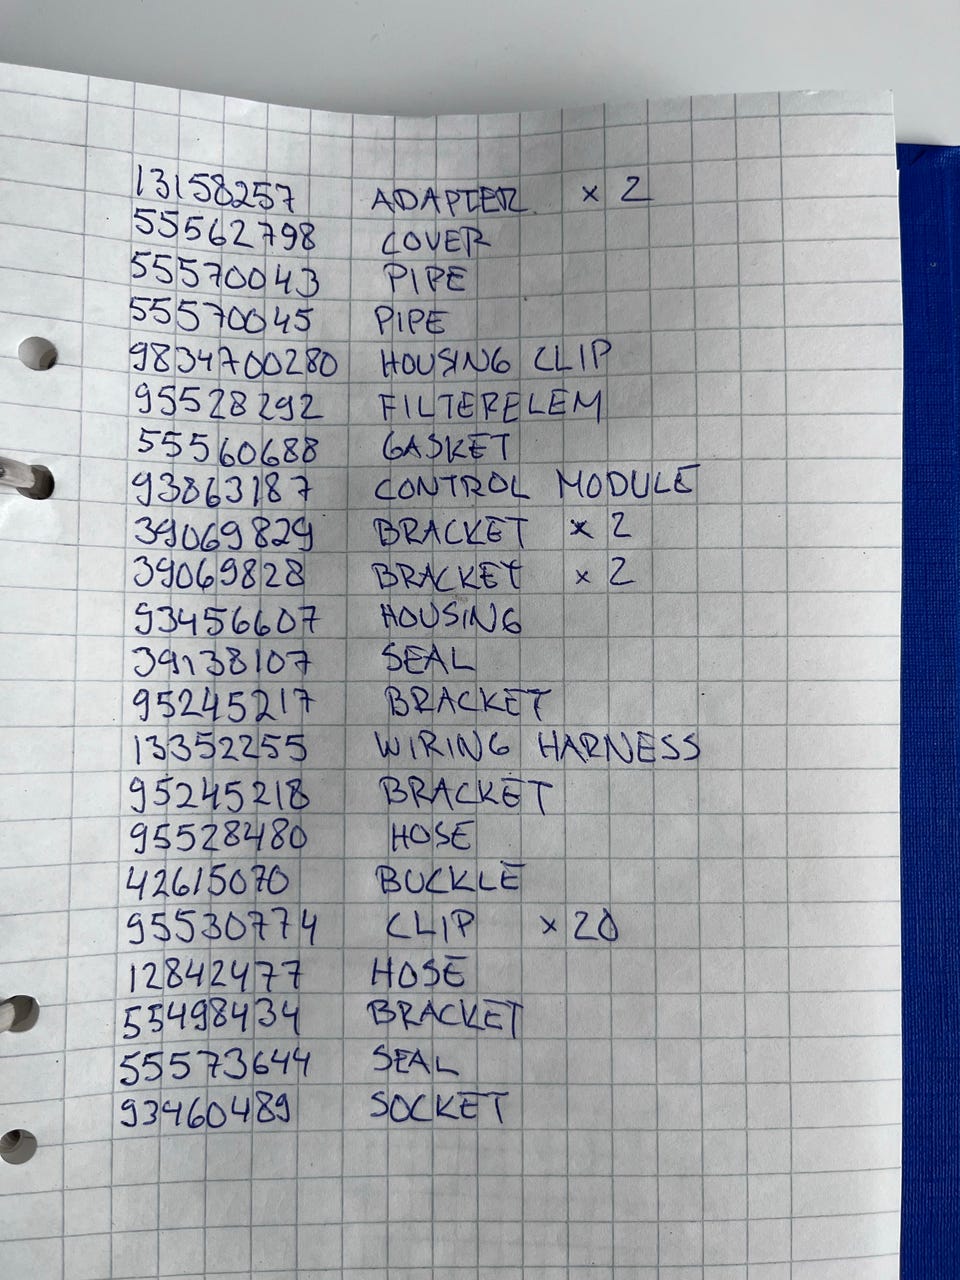 13158257 ADAPTER × 2
55562798 COVER
55570043 PIPE
55570045 PIPE
9834700280 HOUSING CLIP
95528292 FILTERELEM
55560688 GASKET
93863187 CONTROL MODULE
39069829 BRACKET × 2
39069828 BRACKET × 2
93456607 HOUSING
39138107 SEAL
95245217 BRACKET
13352255 WIRING HARNESS
95245218 BRACKET
95528480 HOSE
42615070 BUCKLE
95530774 CLIP × 20
12842477 HOSE
55498434 BRACKET
55573644 SEAL
93460489 SOCKET